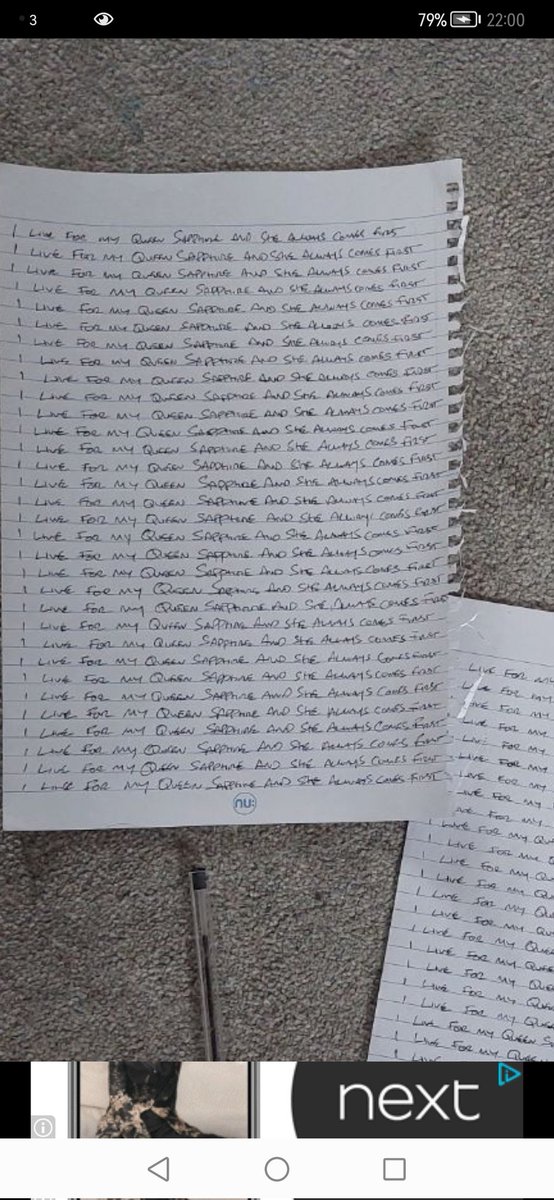 3 79% 22:00
I LIVE FOR MY QUEEN SAPPHIRE AND SHE ALWAYS COMES FIRST
I LIVE FOR MY QUEEN SAPPHIRE AND SHE ALWAYS COMES FIRST
I LIVE FOR MY QUEEN SAPPHIRE AND SHE ALWAYS COMES FIRST
I LIVE FOR MY QUEEN SAPPHIRE AND SHE ALWAYS COMES FIRST
I LIVE FOR MY QUEEN SAPPHIRE AND SHE ALWAYS COMES FIRST
I LIVE FOR MY QUEEN SAPPHIRE AND SHE ALWAYS COMES FIRST
I LIVE FOR MY QUEEN SAPPHIRE AND SHE ALWAYS COMES FIRST
I LIVE FOR MY QUEEN SAPPHIRE AND SHE ALWAYS COMES FIRST
I LIVE FOR MY QUEEN SAPPHIRE AND SHE ALWAYS COMES FIRST
I LIVE FOR MY QUEEN SAPPHIRE AND SHE ALWAYS COMES FIRST
I LIVE FOR MY QUEEN SAPPHIRE AND SHE ALWAYS COMES FIRST
I LIVE FOR MY QUEEN SAPPHIRE AND SHE ALWAYS COMES FIRST
I LIVE FOR MY QUEEN SAPPHIRE AND SHE ALWAYS COMES FIRST
I LIVE FOR MY QUEEN SAPPHIRE AND SHE ALWAYS COMES FIRST
I LIVE FOR MY QUEEN SAPPHIRE AND SHE ALWAYS COMES FIRST
I LIVE FOR MY QUEEN SAPPHIRE AND SHE ALWAYS COMES FIRST
I LIVE FOR MY QUEEN SAPPHIRE AND SHE ALWAYS COMES FIRST
I LIVE FOR MY QUEEN SAPPHIRE AND SHE ALWAYS COMES FIRST
I LIVE FOR MY QUEEN SAPPHIRE AND SHE ALWAYS COMES FIRST
I LIVE FOR MY QUEEN SAPPHIRE AND SHE ALWAYS COMES FIRST
I LIVE FOR MY QUEEN SAPPHIRE AND SHE ALWAYS COMES FIRST
I LIVE FOR MY QUEEN SAPPHIRE AND SHE ALWAYS COMES FIRST
I LIVE FOR MY QUEEN SAPPHIRE AND SHE ALWAYS COMES FIRST
I LIVE FOR MY QUEEN SAPPHIRE AND SHE ALWAYS COMES FIRST
I LIVE FOR MY QUEEN SAPPHIRE AND SHE ALWAYS COMES FIRST
I LIVE FOR MY QUEEN SAPPHIRE AND SHE ALWAYS COMES FIRST
I LIVE FOR MY QUEEN SAPPHIRE AND SHE ALWAYS COMES FIRST
I LIVE FOR MY QUEEN SAPPHIRE AND SHE ALWAYS COMES FIRST
I LIVE FOR MY QUEEN SAPPHIRE AND SHE ALWAYS COMES FIRST
I LIVE FOR MY QUEEN SAPPHIRE AND SHE ALWAYS COMES FIRST
I LIVE FOR MY QUEEN SAPPHIRE AND SHE ALWAYS COMES FIRST
I LIVE FOR MY QUEEN SAPPHIRE AND SHE ALWAYS COMES FIRST
nu:
LIVE FOR MY
LIVE FOR MY
LIVE FOR MY
LIVE FOR MY
LIVE FOR MY
LIVE FOR MY
LIVE FOR MY
LIVE FOR MY
FOR MY
LIVE FOR MY
I LIVE FOR MY
I LIVE FOR MY
I LIVE FOR MY
I LIVE FOR MY
I LIVE FOR MY
I LIVE FOR MY
I LIVE FOR MY QUEEN
I LIVE FOR MY
I LIVE FOR MY
I LIVE FOR MY
I LIVE FOR MY QUEEN
I LIVE FOR MY QUEEN
I LIVE
next